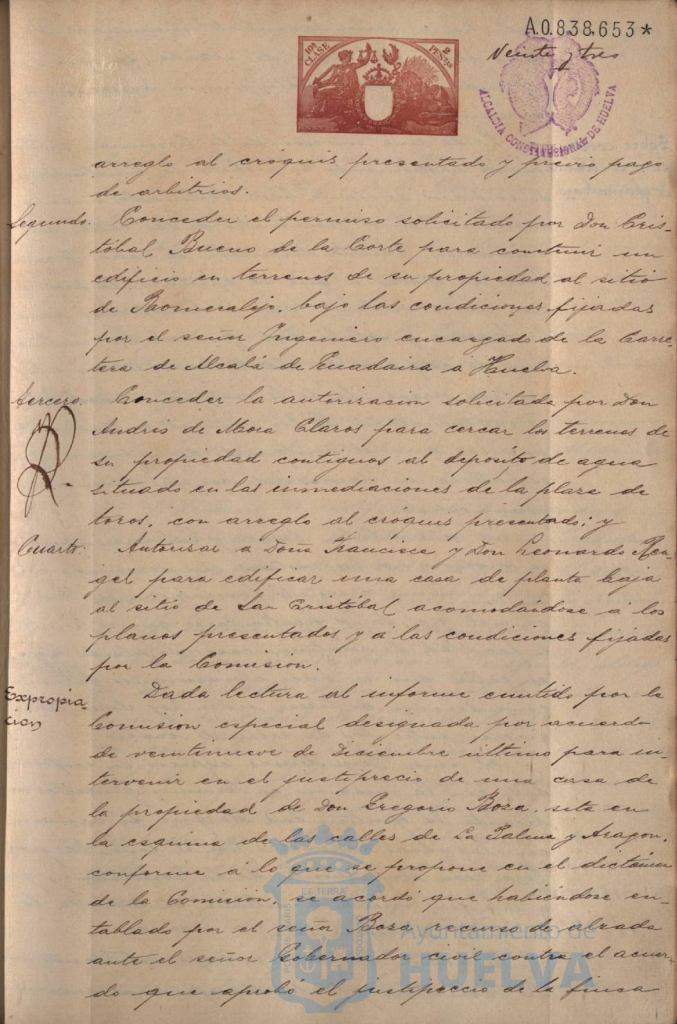 A.0.838,653*
Veinte y tres
10ª CLASE
2 PESETAS
ALCALDIA CONSTITUCIONAL DE HUELVA
arreglo al cróquis presentado y previo pago
de arbitrios.
Segundo. Conceder el permiso solicitado por Don Cris-
tóbal Bueno de la Corte para construir un
edificio en terrenos de su propiedad al sitio
de Romeralejo, bajo las condiciones fijadas
por el señor Ingeniero encargado de la Carre-
tera de Alcalá de Guadaira a Huelva.
Tercero. Conceder la autorizacion solicitada por Don
Andrés de Mora Claros para cercar los terrenos de
su propiedad contiguos al depósito de agua
situado en las inmediaciones de la plaza de
toros, con arreglo al cróquis presentado; y
Cuarto. Autorizar a Doña Francisca y Don Leonardo Ran-
gel para edificar una casa de planta baja
al sitio de San Cristóbal acomodándose á los
planos presentados y á las condiciones fijadas
por la Comision.
Expropia-
cion
Dada lectura al informe emitido por la
Comision especial designada por acuerdo
de veintinueve de Diciembre último para in-
tervenir en el justiprecio de una casa de
la propiedad de Don Gregorio Boza, sita en
la esquina de las calles de La Palma y Aragon,
conforme á lo que se propone en el dictámen
de la Comision, se acordó que habiéndose en-
tablado por el señor Boza recurso de alzada
ante el señor Gobernador civil contra el acuer-
do que aprobó el justiprecio de la finca
Ayuntamiento de
HUELVA